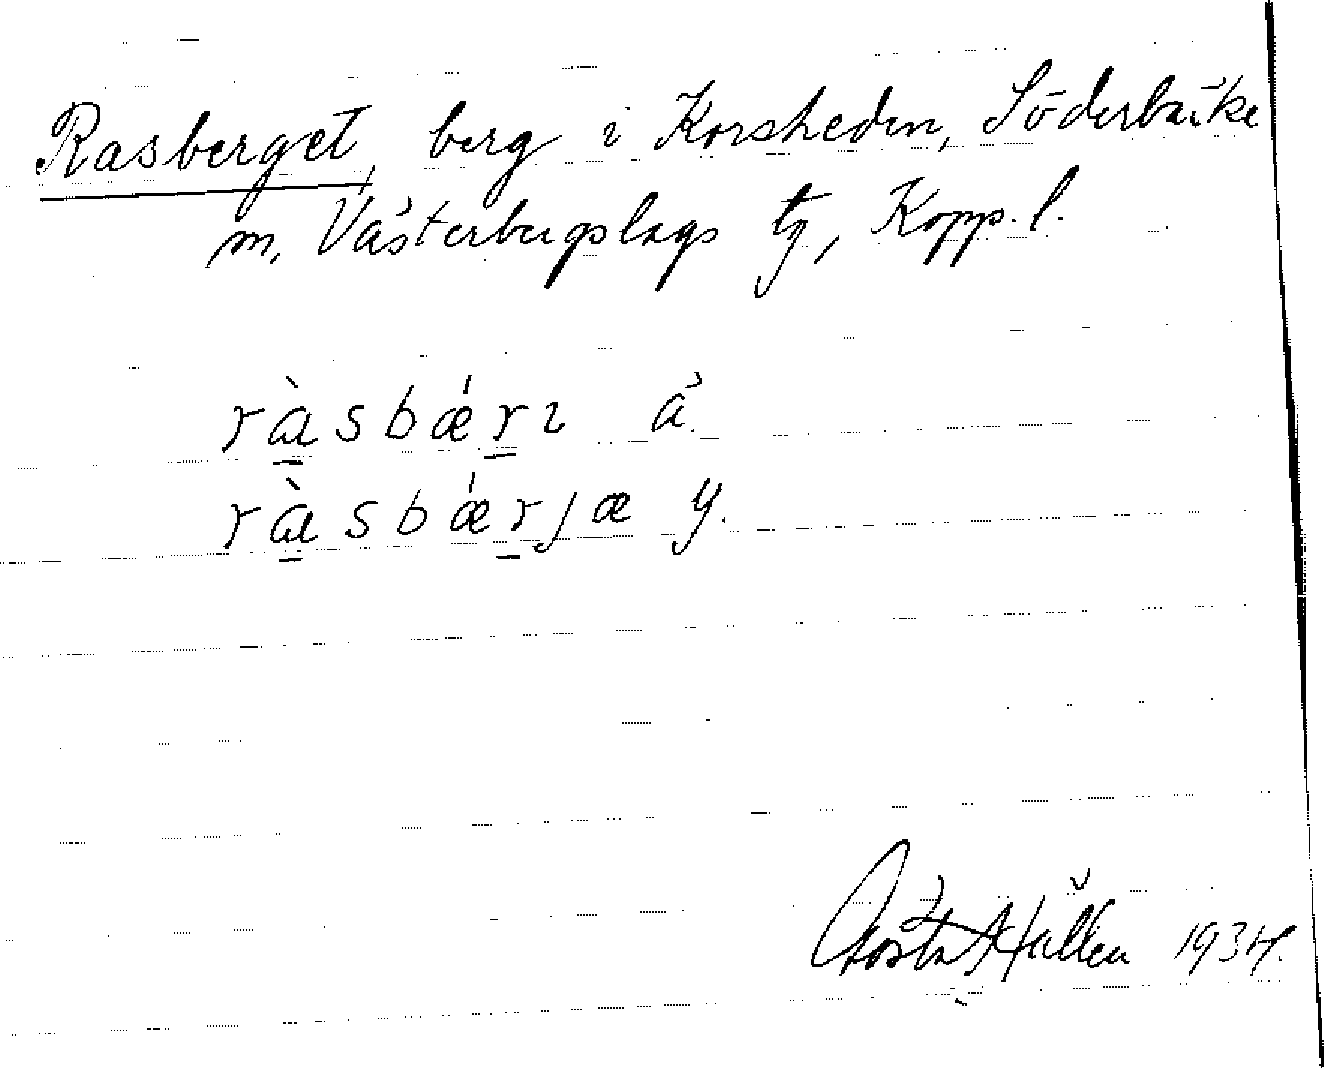 Rasberget, berg i Korsheden, Söderbärke
m, Västerbergslags tg, Kopp. l.
rɑ̀sbǽrı ä.
rɑ̀sbǽrjæ y.
Gösta Hallén 1934.